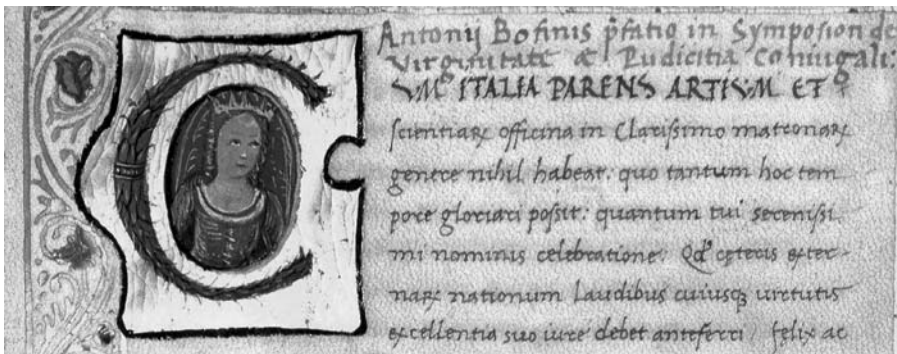 Antonij Bofinis p̄fatio in Symposion de
Virginitate & Pudicitia Coniugali:
VM ITALIA PARENS ARTIVM ET
scientiaꝝ officina in Clarissimo matronaꝝ
genere nihil habeat: quo tantum hoc tem
pore gloriari possit: quantum tui serenissi
mi nominis celebratione. Qđ cęteris exter-
naꝝ nationum laudibus cuiusqꝫ virtutis
excellentia suo iure debet anteferri / felix ac